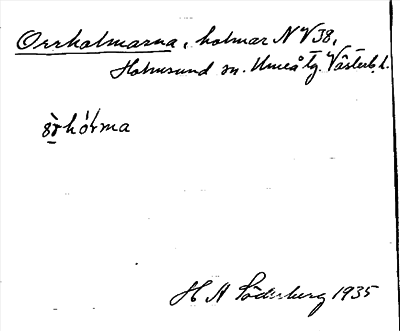 Orrholmarna, holmar N V 38,
Holmsund sn. Umeå tg. Västerb. l.
hólma
H A Söderberg 1935